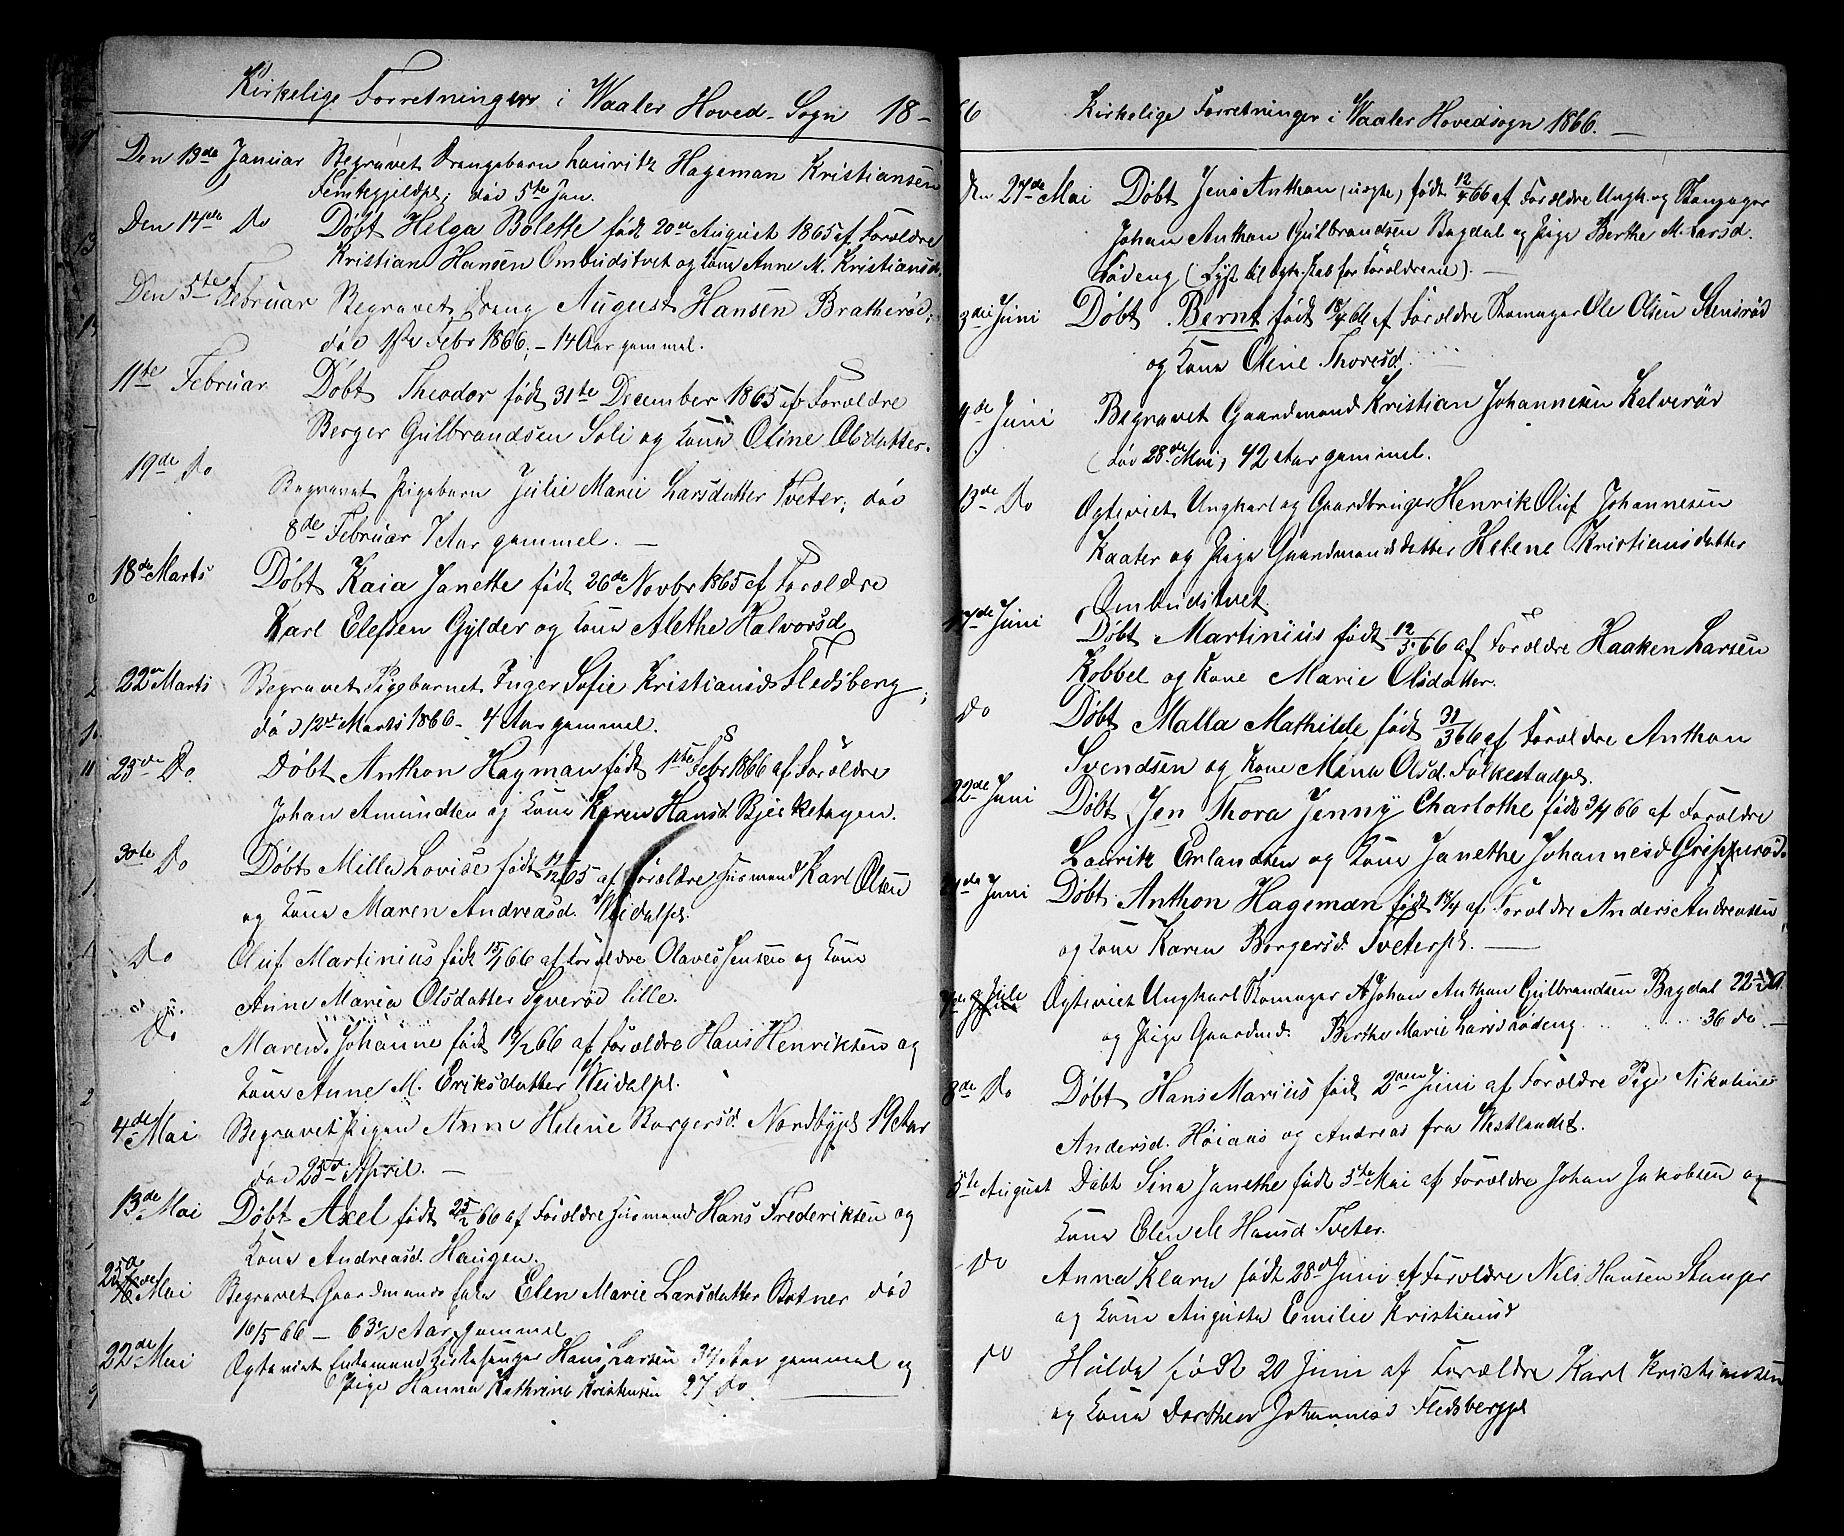 Kirkelige Forretninger i Waaler Hoved-Sogn 18-
Den 13de Januar Begravet Drengebarn Lauritz Hageman Kristiansen
død 5te Jan.
Den 14de Do Døbt Helga Bolette født 20de August 1865 af Forældre
Kristian Hansen Ombudstvet og Kone Anne M. Kristiansd.
Den 5te Februar Begravet Dreng August Hansen Bratherød;
død 1ste Febr 1866, - 14 Aar gammel.
11te Februar Døbt Theodor født 31te December 1865 af Forældre
Berger Gulbrandsen Soli og Kone Oline Olsdatter.
19de Do
Begravet Pigebarn Julie Marie Larsdatter Tveter; død
8de Februar 7 Aar gammel. —
18de Marts Døbt Kaia Janette født 26de Novbr 1865 af Forældre
Karl Elefsen Gylder og Kone Alethe Halvorsd
22de Marts Begravet Pigebarnet Inger Sofie Kristiansd Fledsberg;
død 12te Marts 1866 - 4 Aar gammel.
25de Do. Døbt Anthon Hagman født 1ste Febr 1866 af Forældre
Johan Amundsen og Kone Karen Hansd. Bjerketagen.
30te Do Døbt Milla Lovise født 65 af Forældre Husmand Karl Olsen
og Kone Maren Andreasd. Weidalpl.
Do Oluf Martinius født 15/1 66 af Forældre Olaves Jensen og Kone
Anne Maria Olsdatter Syverød lille.
Do Maren Johanne født 66 af Forældre Hans Henriksen og
Kone Anne M. Eriksdatter Weidalpl.
4de Mai Begravet Pigen Anne Helene Borgersd. Nordbypl 19 Aar
død 25de April. —
13de Mai Døbt Axel født 25/2 66 af Forældre Husmand Hans Frederiksen og
Kone Andreasd. Haugen.
25de Mai Begravet Gaardmands Enke Elen Marie Larsdatter Botner død
16/5 66 — 63 1/2 Aar gammel
22de Mai Ægteviet Enkemand Kirkesanger Hans Larsen 34 Aar gammel og
Pige Hanna Kathrine Kristensen 27 do.
66 Kirkelige Forretninger i Waaler Hovedsogn 1866. —
Den 27de Mai Døbt Jens Anthon (uægte) født 12/4 66 af Forældre Ungk. og Skomager
Johan Anthon Gulbrandsen Bagdal og Pige Berthe M. Larsd.
Lødeng (Lyst til ægteskab for Forældrene). —
3die Juni Døbt Bernt født 66 af Forældre Skomager Ole Olsen Stensrød
og Kone Oline Thoresd.
4de Juni Begravet Gaardmand Kristian Johannesen Kalverød
(død 28de Mai) 42 Aar gammel.
13de Do Ægteviet Ungkarl og Gaardbruger Henrik Oluf Johannesen
Kaater og Pige Gaardmandsdatter Helene Kristiansdatter
Ombudstvet.
17de Juni Døbt Martinius født 12/5 66 af Forældre Haaken Larsen
Kobbel og Kone Marie Olsdatter.
Do Døbt Malla Mathilde født 31/3 66 af Forældre Anthon
Svendsen og Kone Mina Olsd. Folkestadpl.
22de Juni Døbt Jen Thora Jenny Charlothe født 3/4 66 af Forældre
Laurik Erlandsen og Kone Janethe Johannesd Gripperød.
24de Juni Døbt Anthon Hageman født 13/4 af Forældre Anders Andreasen
og Kone Karen Borgersd. Tveterpl. —
Juli Ægteviet Ungkarl Skomager Johan Anthon Gulbrandsen Bagdal 22
og Pige Gaardmd. Berthe Marie Larsd Lødeng 36 do —
8de Do Døbt Hans Marius født 2den Juni af Forældre Pige Nikoline
Andersd. Høiaas og Andreas fra Westlandet.
5te August Døbt Sina Janethe født 3die Mai af Forældre Johan Jakobsen og
Kone Elen M Hansd Tveter.
Do Anna Klara født 28de Juni af Forældre Nils Hansen
og Kone Augusta Emilie Kristiansd
Do Hulda født 20 Juni af Forældre Karl Kristiansen
og Kone Dorthea Johannesd Fledsbergpl